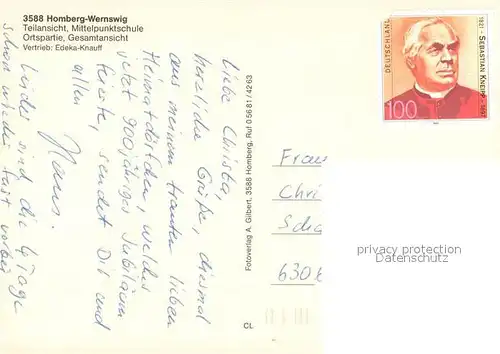 3588 Homberg-Wernswig
Teilansicht, Mittelpunktschule
Ortspartie, Gesamtansicht
Vertrieb: Edeka-Knauff
Liebe Christa,
herzliche Grüße, diesmal
aus meinem trauten lieben
Heimatdörfchen, welches
jetzt 900jähriges Jubiläum
feierte, sendet Dir und
allen
Hans.
Leider sind die 4 Tage
schon wieder fast vorbei
Fotoverlag A. Gilbert, 3588 Homberg, Ruf 05681/4263
CL
DEUTSCHLAND
100
1821 - SEBASTIAN KNEIPP - 1897
Frau
Chri
Scha
6306
privacy protection
AK Ansichtskarten